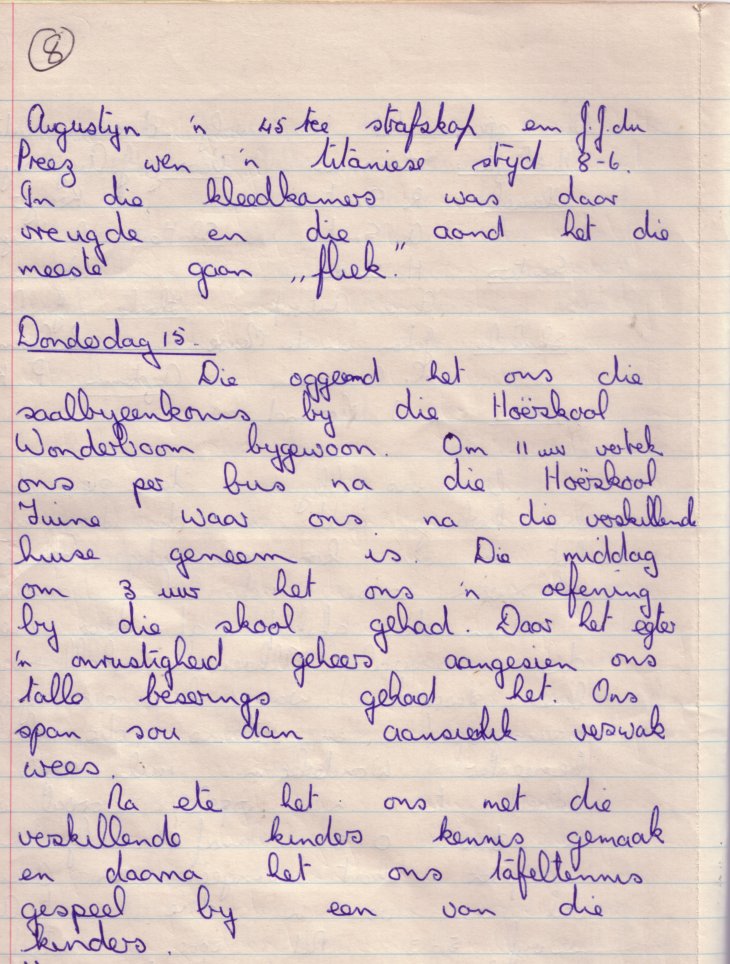 8
Augustyn 'n 45 tee strafskop em J.J. du
Preez wen 'n titaniese stryd 8-6.
In die kleedkamers was daar
vreugde en die aand het die
meeste gaan „fliek."
Donderdag 15.
Die oggend het ons die
saalbyeenkoms by die Hoërskool
Wonderboom bygewoon. Om 11 uur vertrek
ons per bus na die Hoërskool
waar ons na die verskillende
huise geneem is. Die middag
om 3 uur het ons 'n oefening
by die skool gehad. Daar het egter
'n onrustigheid geheers aangesien ons
talle beserings gehad het. Ons
span sou dan aansienlik verswak
wees.
Na ete het ons met die
verskillende kinders kennis gemaak
en daarna het ons tafeltennis
gespeel by een van die
kinders.